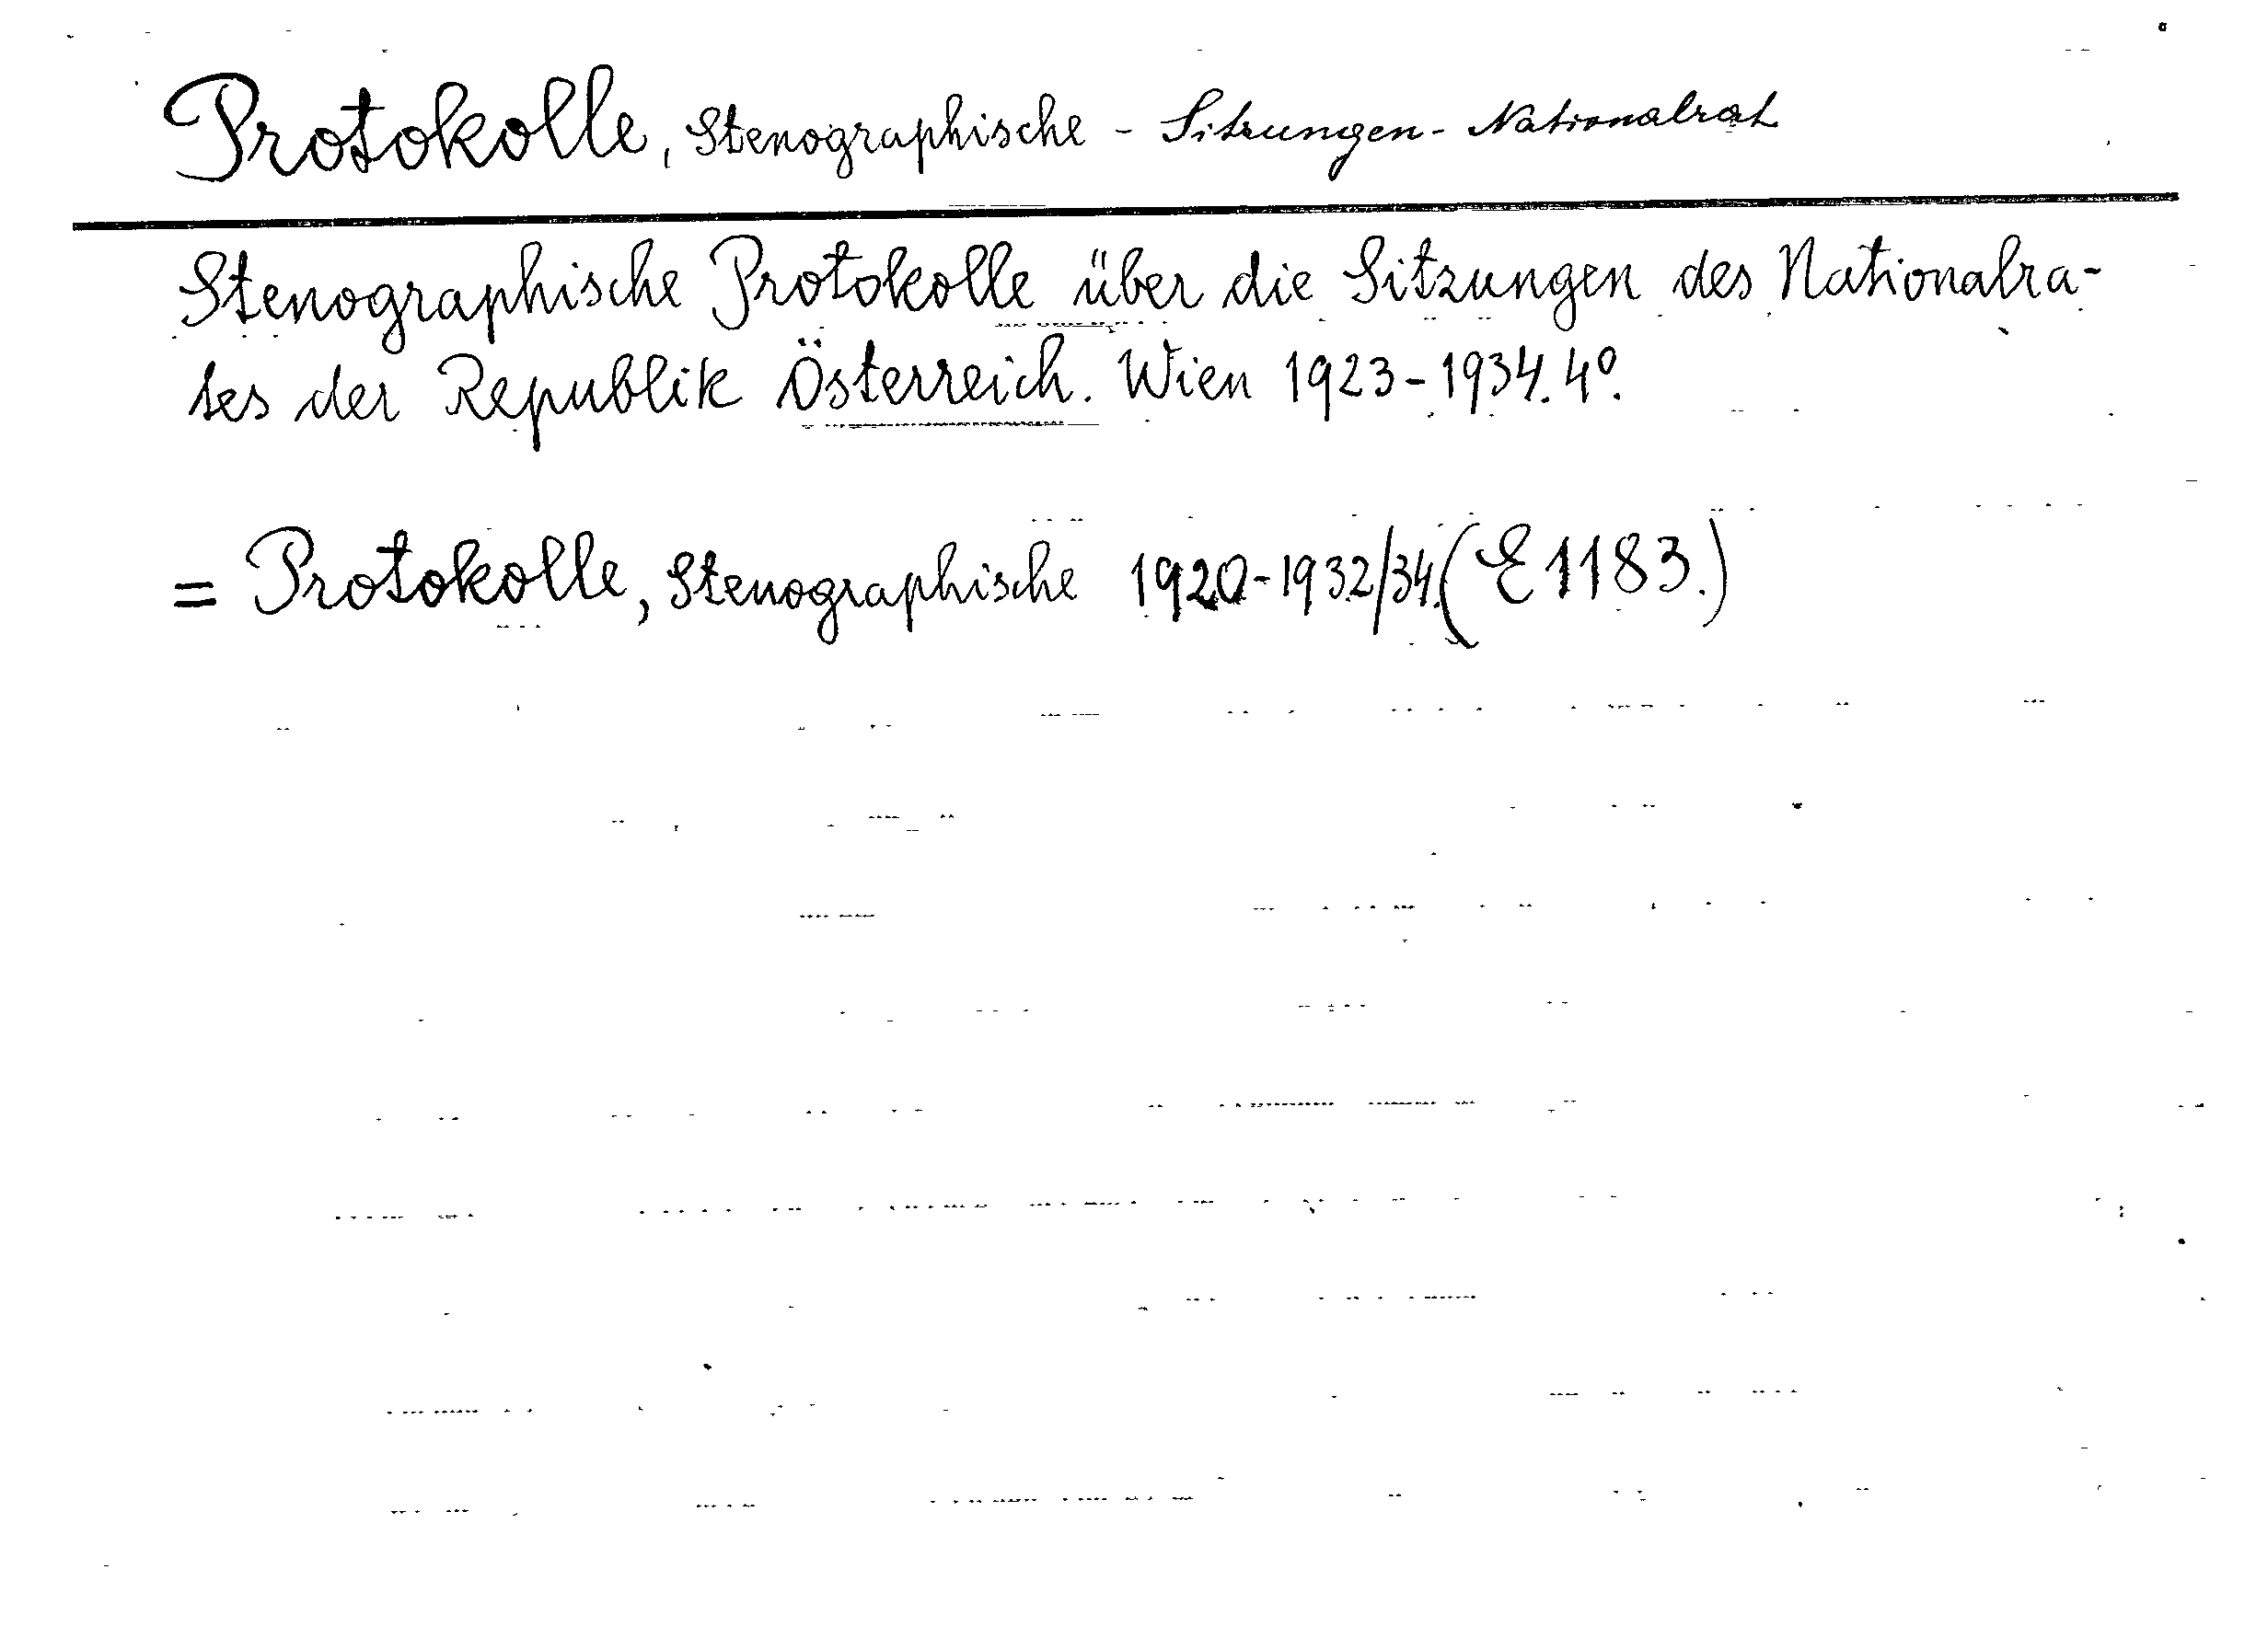 Protokolle, Stenographische - Sitzungen - Nationalrat
Stenographische Protokolle über die Sitzungen des Nationalra-
tes der Republik Österreich. Wien 1923-1934. 4º.
= Protokolle, Stenographische 1920-1932/34. (E 1183.)